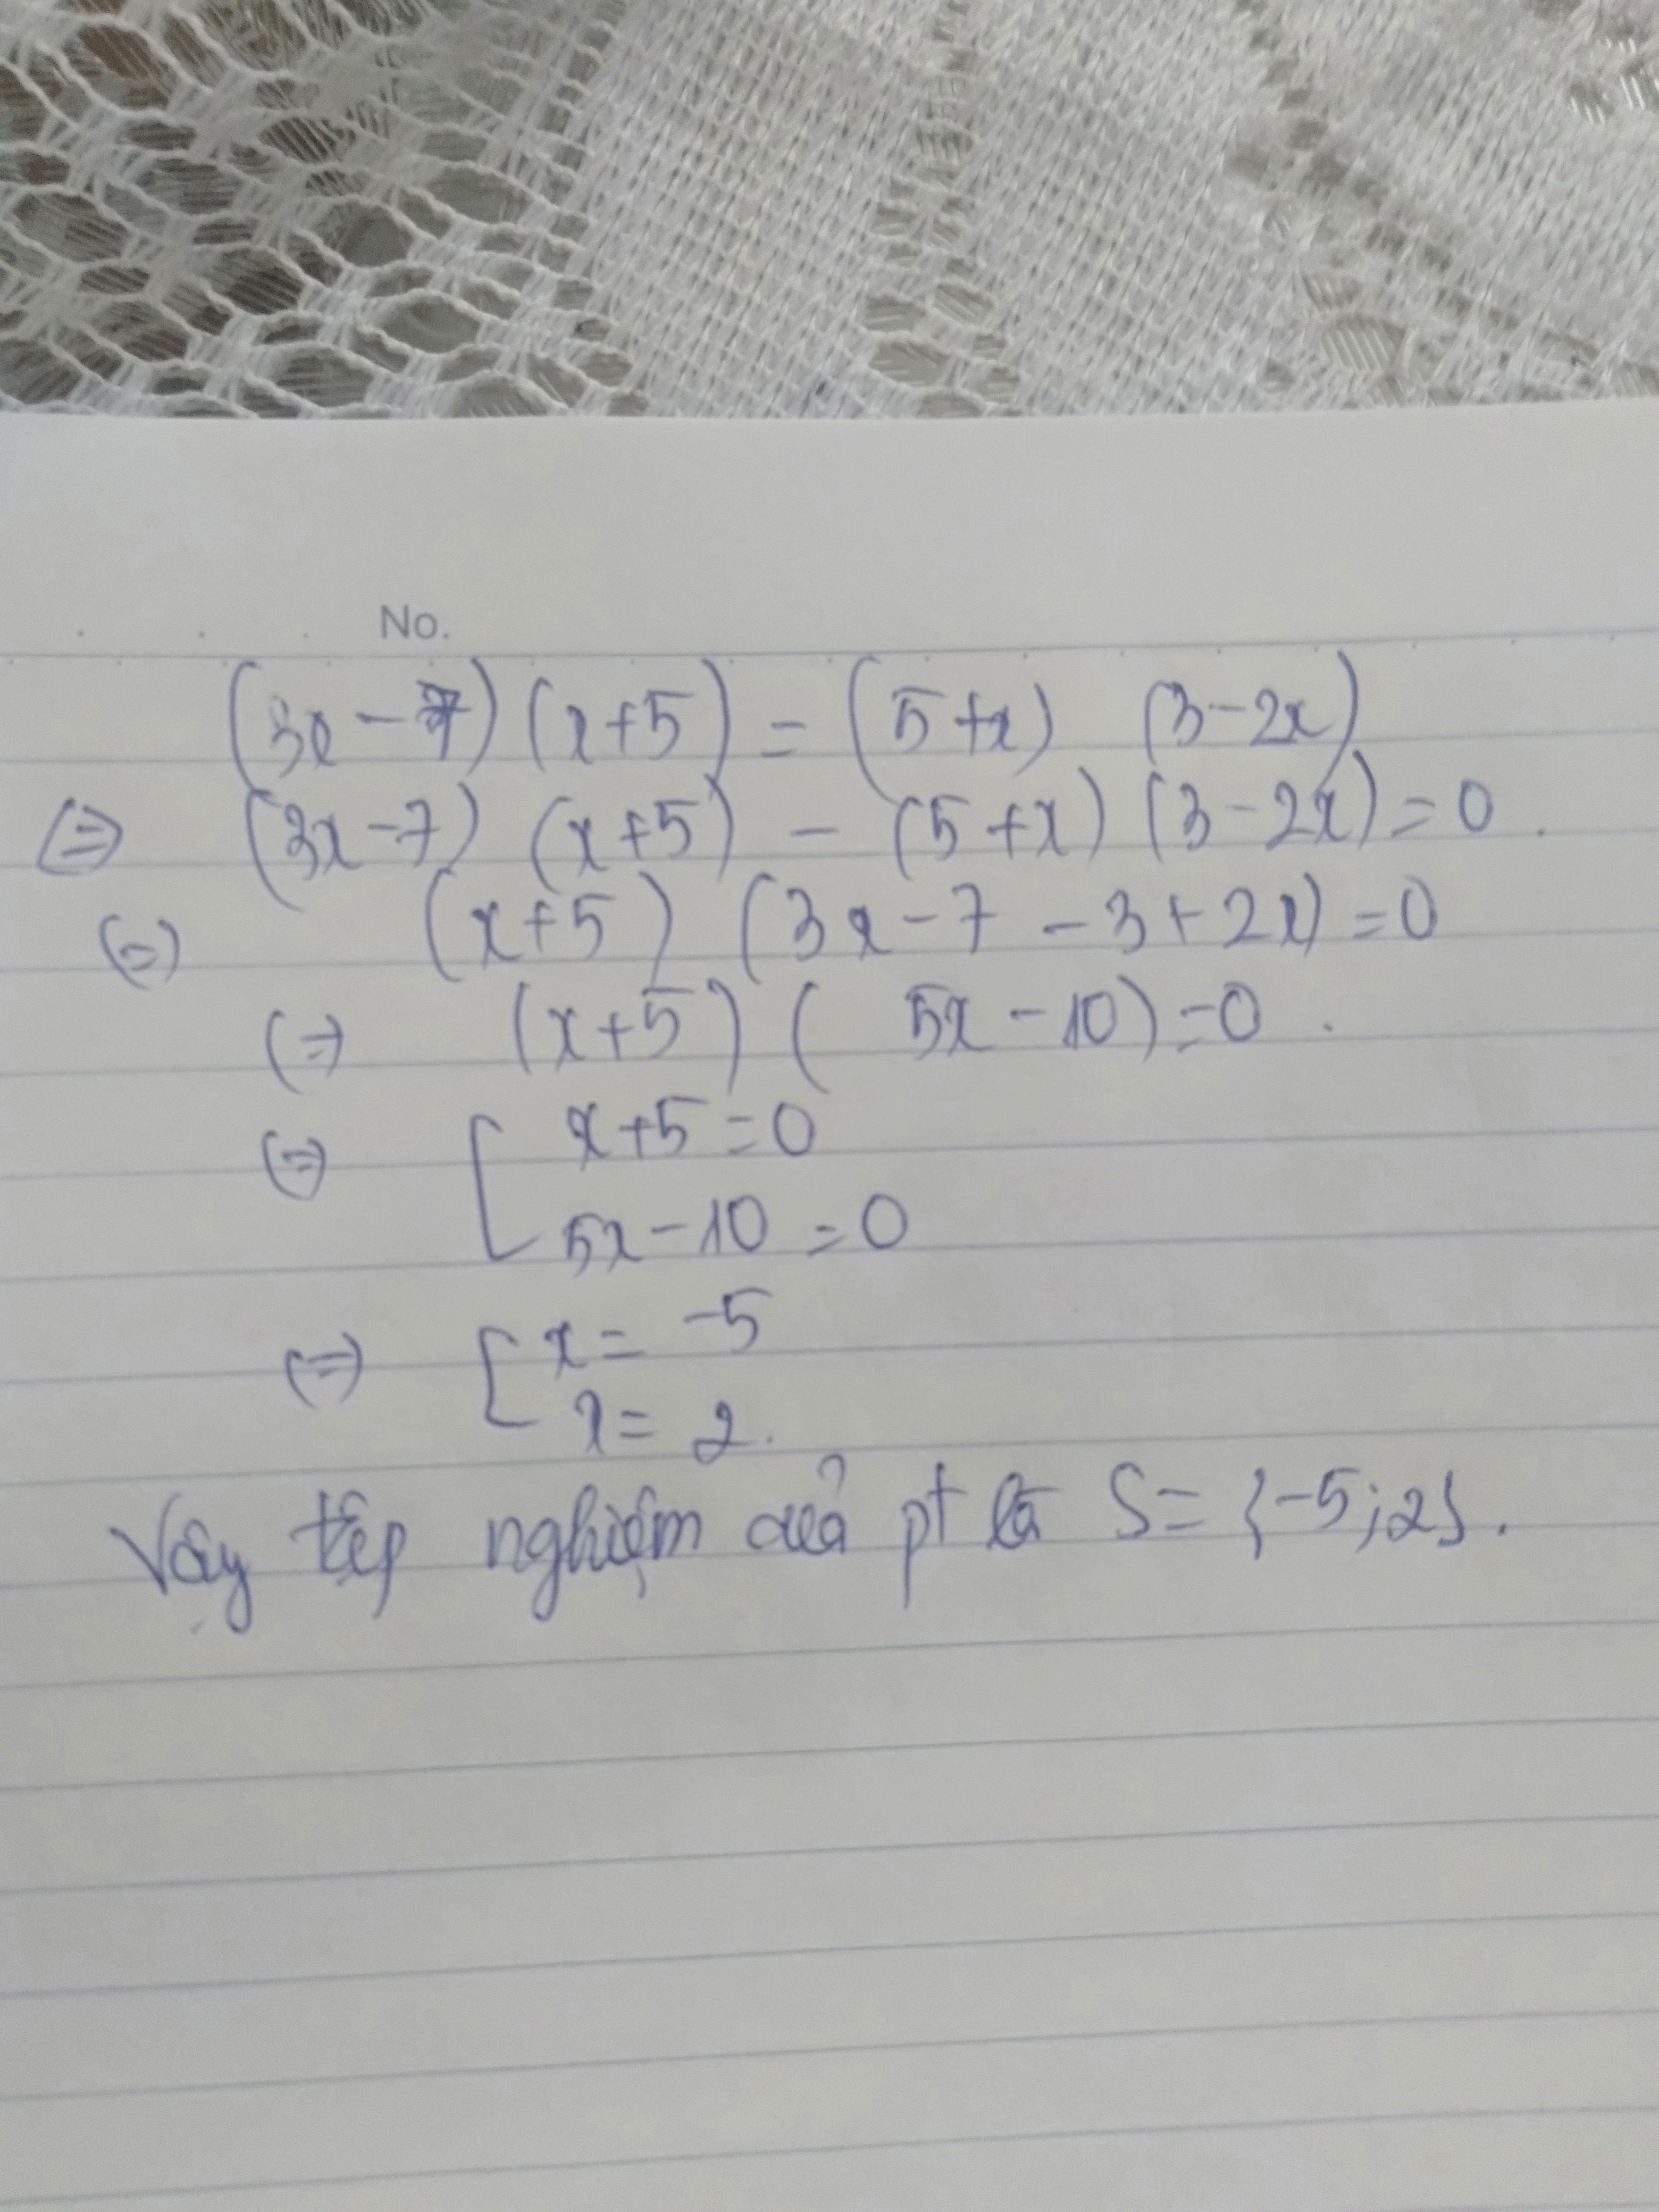 No.
(3x - 7) (x+5) = (5+x) (3-2x)
(=) (3x-7) (x+5) - (5+x) (3-2x) = 0.
(=) (x+5) (3x-7 -3+2x) = 0
(=) (x+5) ( 5x-10) = 0.
(=) [ x+5 = 0
5x-10 = 0
(=) [ x = -5
x = 2.
Vậy tập nghiệm của pt là S = {-5;2}.